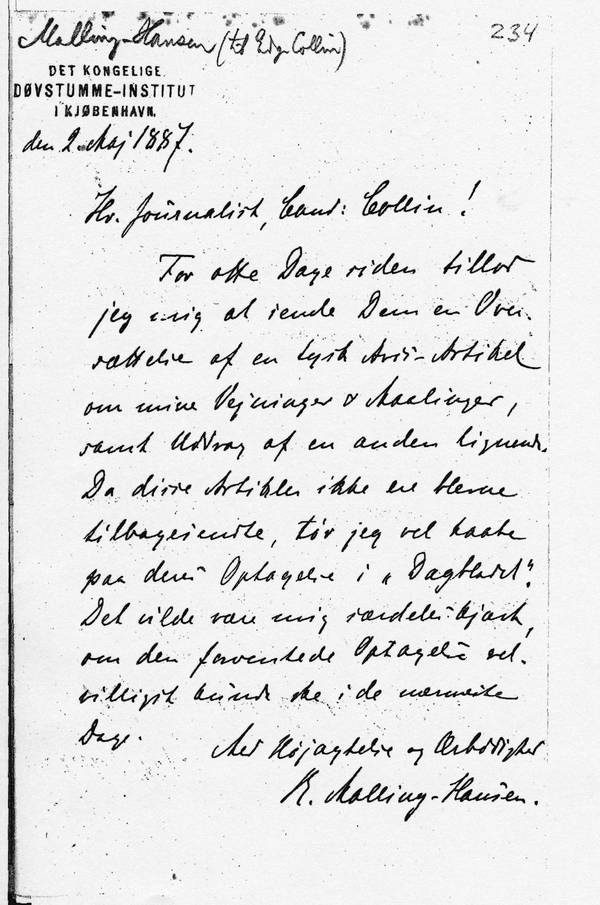 Malling-Hansen (til Edg. Collin)
234
DET KONGELIGE
DØVSTUMME-INSTITUT
I KJØBENHAVN.
den 2. Maj 1887.
Hr. Journalist, Cand: Collin!
For otte Dage siden tillod
jeg mig at sende Dem en Over-
sættelse af en tysk Avis-Artikel
om mine Vejninger & Maalinger,
samt Uddrag af en anden lignende.
Da disse Artikler ikke ere blevne
tilbagesendte, tør jeg vel haabe
paa deres Optagelse i „Dagbladet".
Det vilde være mig særdeles kjært,
om den forventede Optagelse vel-
villigst kunde ske i de nærmeste
Dage.
Med Højagtelse og Ærbødighed
R. Malling-Hansen.